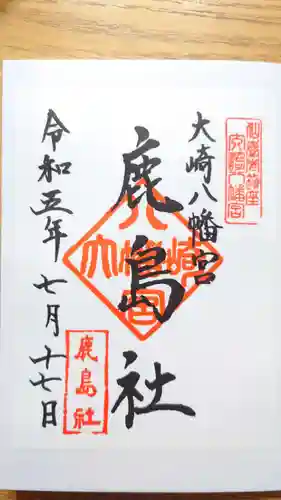 大崎八幡宮
鹿島社
令和五年七月十七日
大崎八幡宮
鹿島社